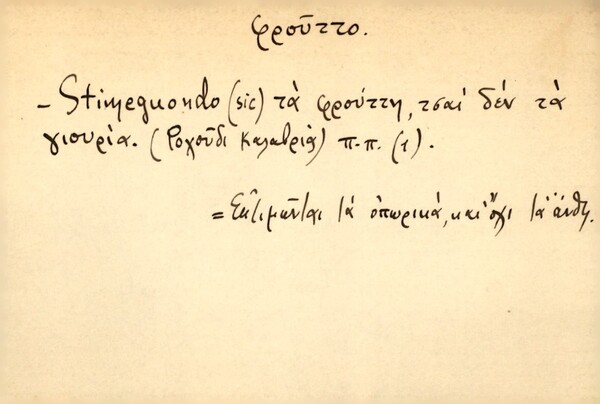 φροῦττο.
- Stimeguondo (sic) τὰ φρούττη, τσαὶ δέν τὰ
γιουρία. (Ροχοῦδι Καλαβρία) π.π. (1).
= Ἐκτιμῶνται τά ὀπωρικά, και ὄχι τα ἄνθη.